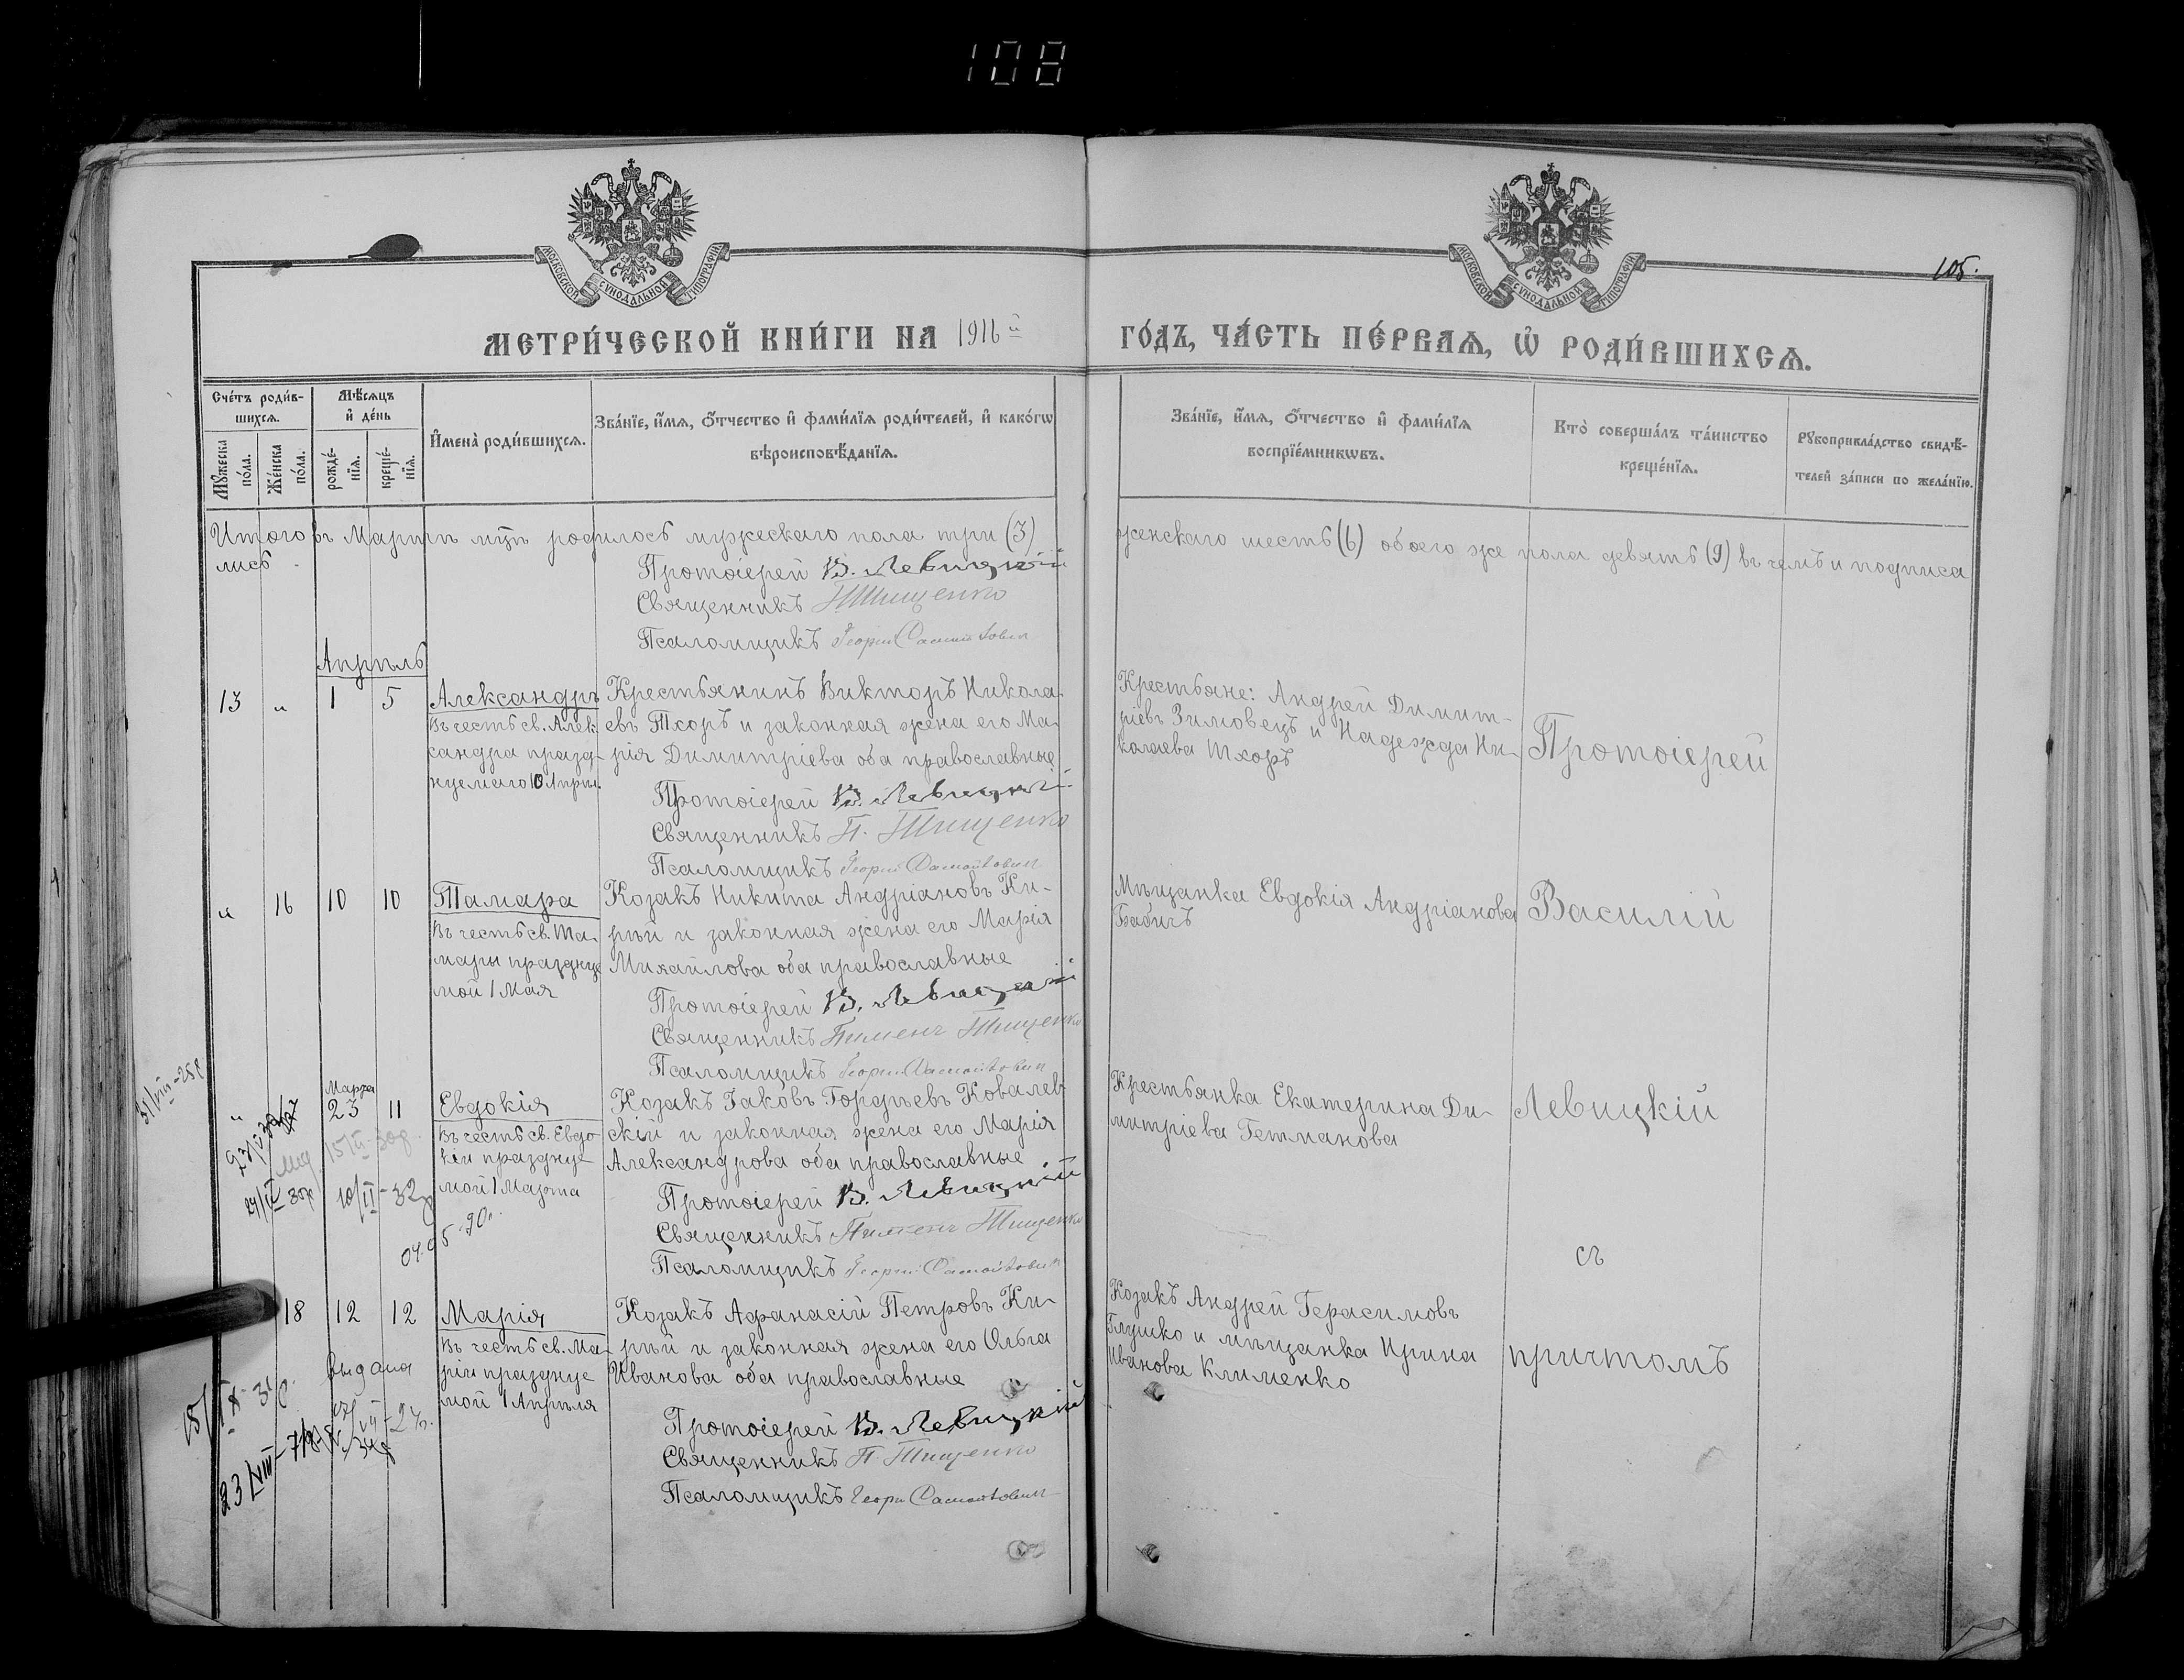 108
МОСКОВСКОЙ СУНОДАЛЬНОЙ ТИПОГРАФІИ
МОСКОВСКОЙ СУНОДАЛЬНОЙ ТИПОГРАФІИ
105.
МЕТРИ́ЧЕСКОЙ КНИ́ГИ НА 1916й
ГО́ДЪ, ЧА́СТЬ ПЕ́РВАѦ, Ѽ РОДИ́ВШИХСѦ.
Сче́тъ роди́в-
шихсѧ.
Мꙋ́жеска по́ла.
Же́нска по́ла.
Мѣ́сѧцъ
и҆ де́нь
рожде́-
нїѧ.
креще́-
нїѧ.
И҆мена̀ роди́вшихсѧ.
Зва́нїе, и҆́мѧ, ѻ҆́тчество и҆ фами́лїѧ роди́телей, и҆ како́гѡ
вѣроисповѣ́данїѧ.
Зва́нїе, и҆́мѧ, ѻ҆́тчество и҆ фами́лїѧ
воспрїе́мникѡвъ.
Кто̀ соверша́лъ та́инство
креще́нїѧ.
Рꙋкоприкла́дство свидѣ́-
телей за́писи по жела́нїю.
Итого въ Мартѣ мцѣ родилось мужескаго пола три (3)
женскаго шесть (6) обоего же пола девять (9) въ чемъ и подписа
лись
Протоіерей В. Левицкій
Священникъ П Тищенко
Псаломщикъ Георгій Самойлович
Апрѣль
13 " 1 5 Александръ
Въ честь св. Алек-
сандра празд-
нуемаго 10 Апрѣл.
Крестьянинъ Викторъ Никола-
евъ Тхоръ и законная жена его Ма-
рія Димитріева оба православные
Протоіерей В. Левицкій
Священникъ П. Тищенко
Псаломщикъ Георгій Самойлович
Крестьяне: Андрей Димит-
ріевъ Зимовецъ и Надежда Ни-
колаева Тхоръ
Протоіерей
" 16 10 10 Тамара
Въ честь св. Та-
мары празднуе
мой 1 Мая
Козакъ Никита Андріановъ Ки-
рѣй и законная жена его Марія
Михайлова оба православные
Протоіерей В. Левицкій
Священникъ Пименъ Тищенко
Псаломщикъ Георгій Самойлович
Мѣщанка Евдокія Андріанова
Бабичъ
Василій
31/VIII-25г
Марта
" 23 11 Евдокія
Въ честь св. Евдо-
кіи празднуе
мой 1 Марта
15/II-30г.
10/II-32г
04.05.90г.
Козакъ Іаковъ Гордѣевъ Ковалев-
скій и законная жена его Марія
Александрова оба православные
Протоіерей В. Левицкій
Священникъ Пименъ Тищенко
Псаломщикъ Георгій Самойлович
Крестьянка Екатерина Ди-
митріева Гетманова
Левицкій
съ
18 12 12 Марія
Въ честь св. Ма-
ріи празднуе
мой 1 Апрѣля
выдана
Козакъ Афанасій Петровъ Ки-
рѣй и законная жена его Ольга
Иванова оба православные
Протоіерей В. Левицкій
Священникъ П. Тищенко
Псаломщикъ Георгій Самойлович
Козакъ Андрей Герасимовъ
Глушко и мѣщанка Ирина
Иванова Клименко
причтомъ